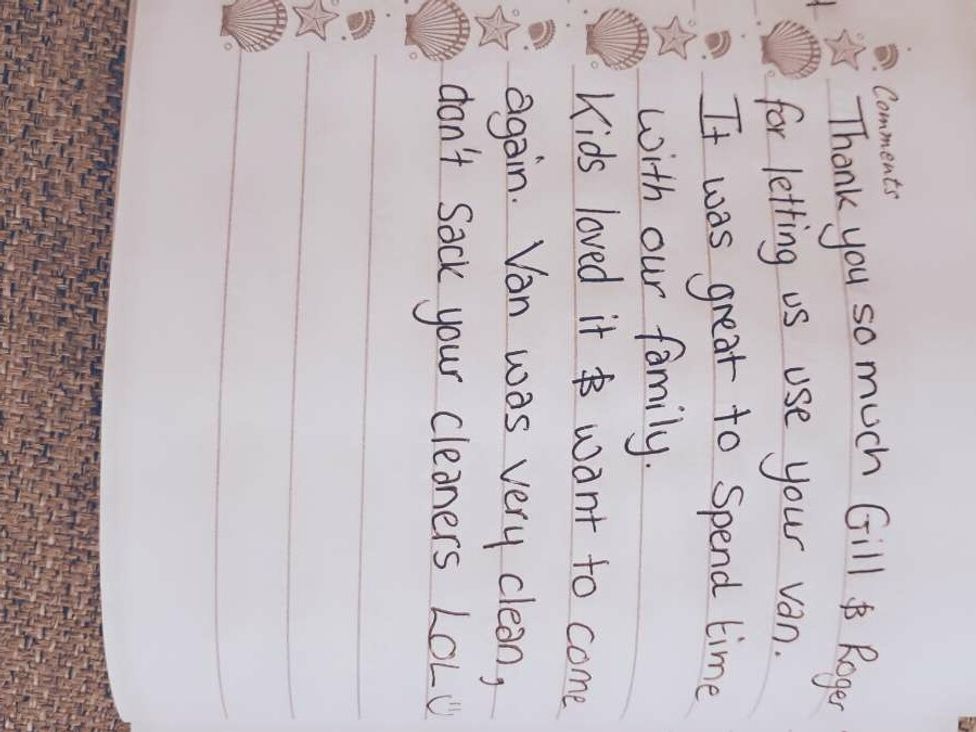 Comments
Thank you so much Gill & Roger
for letting us use your van.
It was great to Spend time
with our family.
Kids loved it & want to come
again. Van was very clean,
don't Sack your cleaners LOL☺